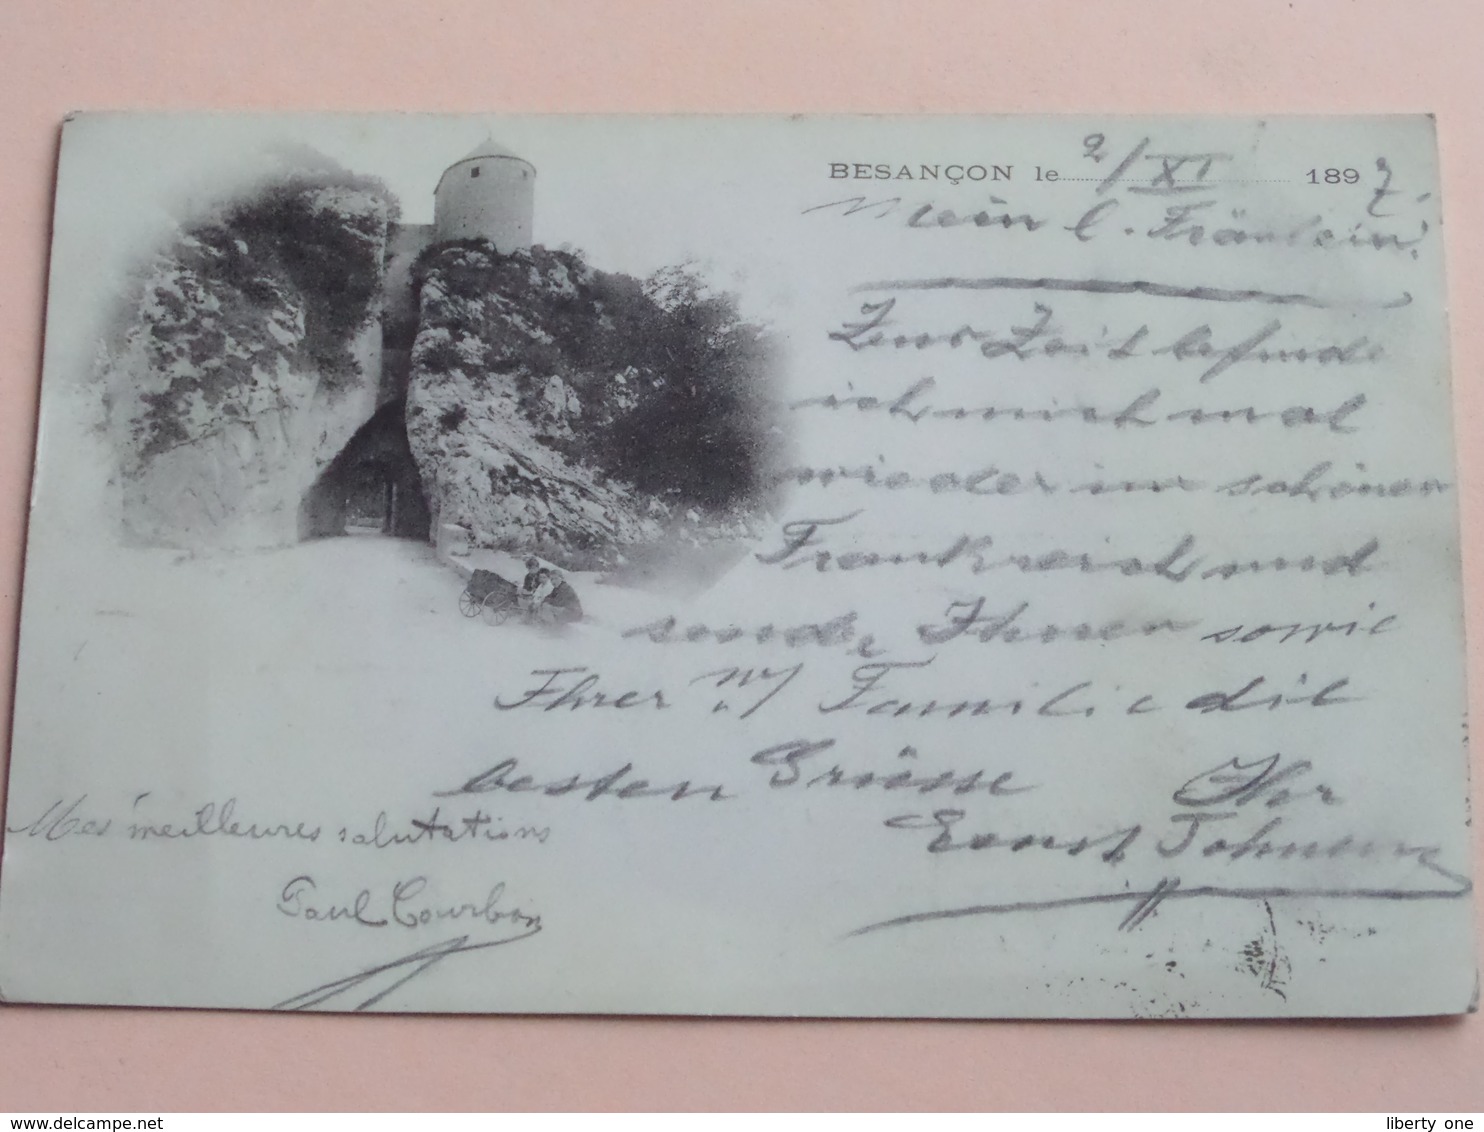 BESANÇON le 2/XI 1897.
Mein l. Fräulein!
Zur Zeit befinde
ich mich mal
wieder im schönen
Frankreich und
sende Ihnen sowie
Ihrer w/ Familie die
besten Grüsse Ihr
Ernst
Mes meilleures salutations
Paul Courbon
www.delcampe.net
liberty one